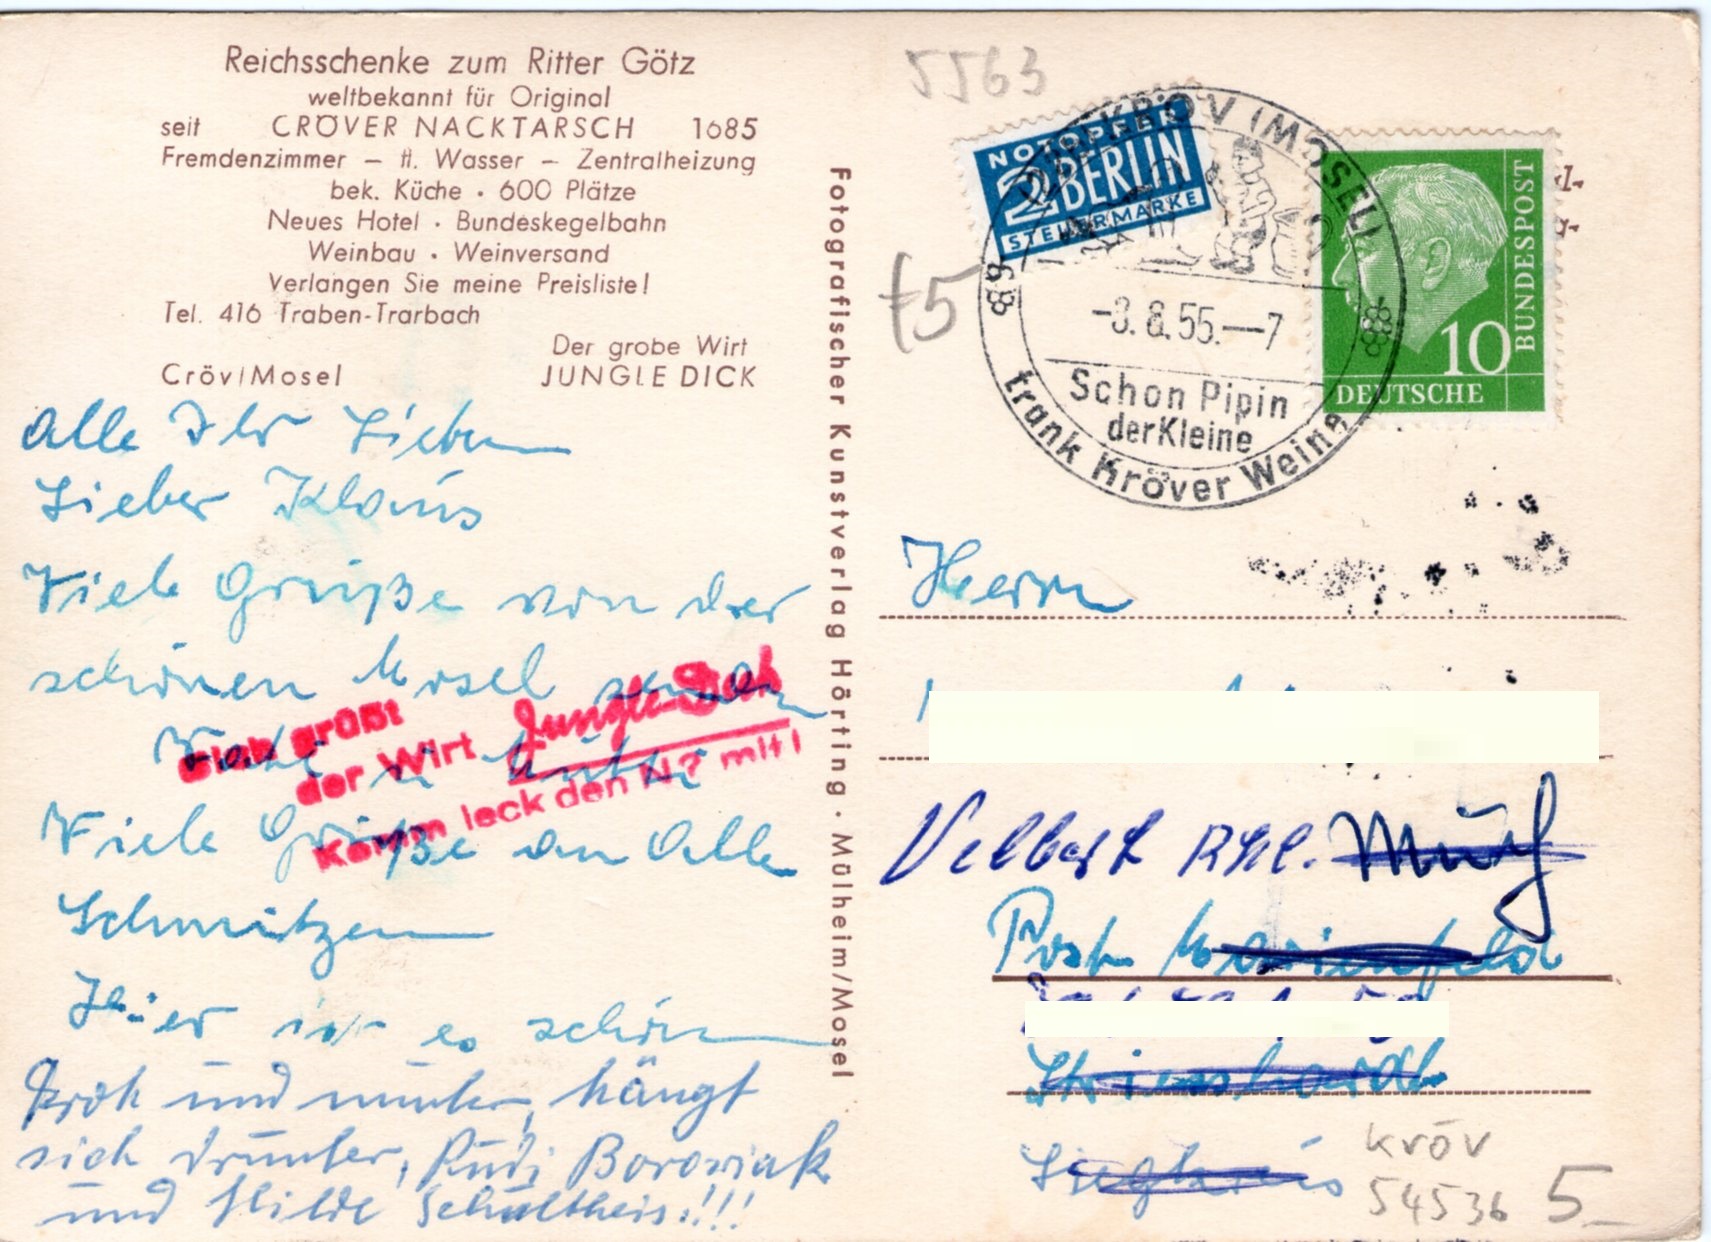 Reichsschenke zum Ritter Götz
weltbekannt für Original
seit CRÖVER NACKTARSCH 1685
Fremdenzimmer – fl. Wasser – Zentralheizung
bek. Küche · 600 Plätze
Neues Hotel · Bundeskegelbahn
Weinbau · Weinversand
Verlangen Sie meine Preisliste!
Tel. 416 Traben-Trarbach
Der grobe Wirt
Cröv/Mosel JUNGLE DICK
Alle Ihr Lieben
Lieber Klaus
Viele Grüße von der
schönen Mosel senden
Vati u Mutti
Viele Grüße an Alle
Schmitzen
Hier ist es schön
Froh und munter, hängt
sich drunter, Rudi Borowiak
und Hilde Schultheis!!!
Dich grüßt
der Wirt Jungle Dick
Komm leck den N? mit!
Fotografischer Kunstverlag Hörting · Mülheim/Mosel
5563
€5
NOTOPFER
2 BERLIN
STEUERMARKE
KRÖV (MOSEL)
-3.8.55.-–7
Schon Pipin
der Kleine
trank Kröver Weine
10
DEUTSCHE
BUNDESPOST
Herrn
Velbert Rhl. Much
Post Marienfeld
Siegkreis
Kröv
54536
5,–